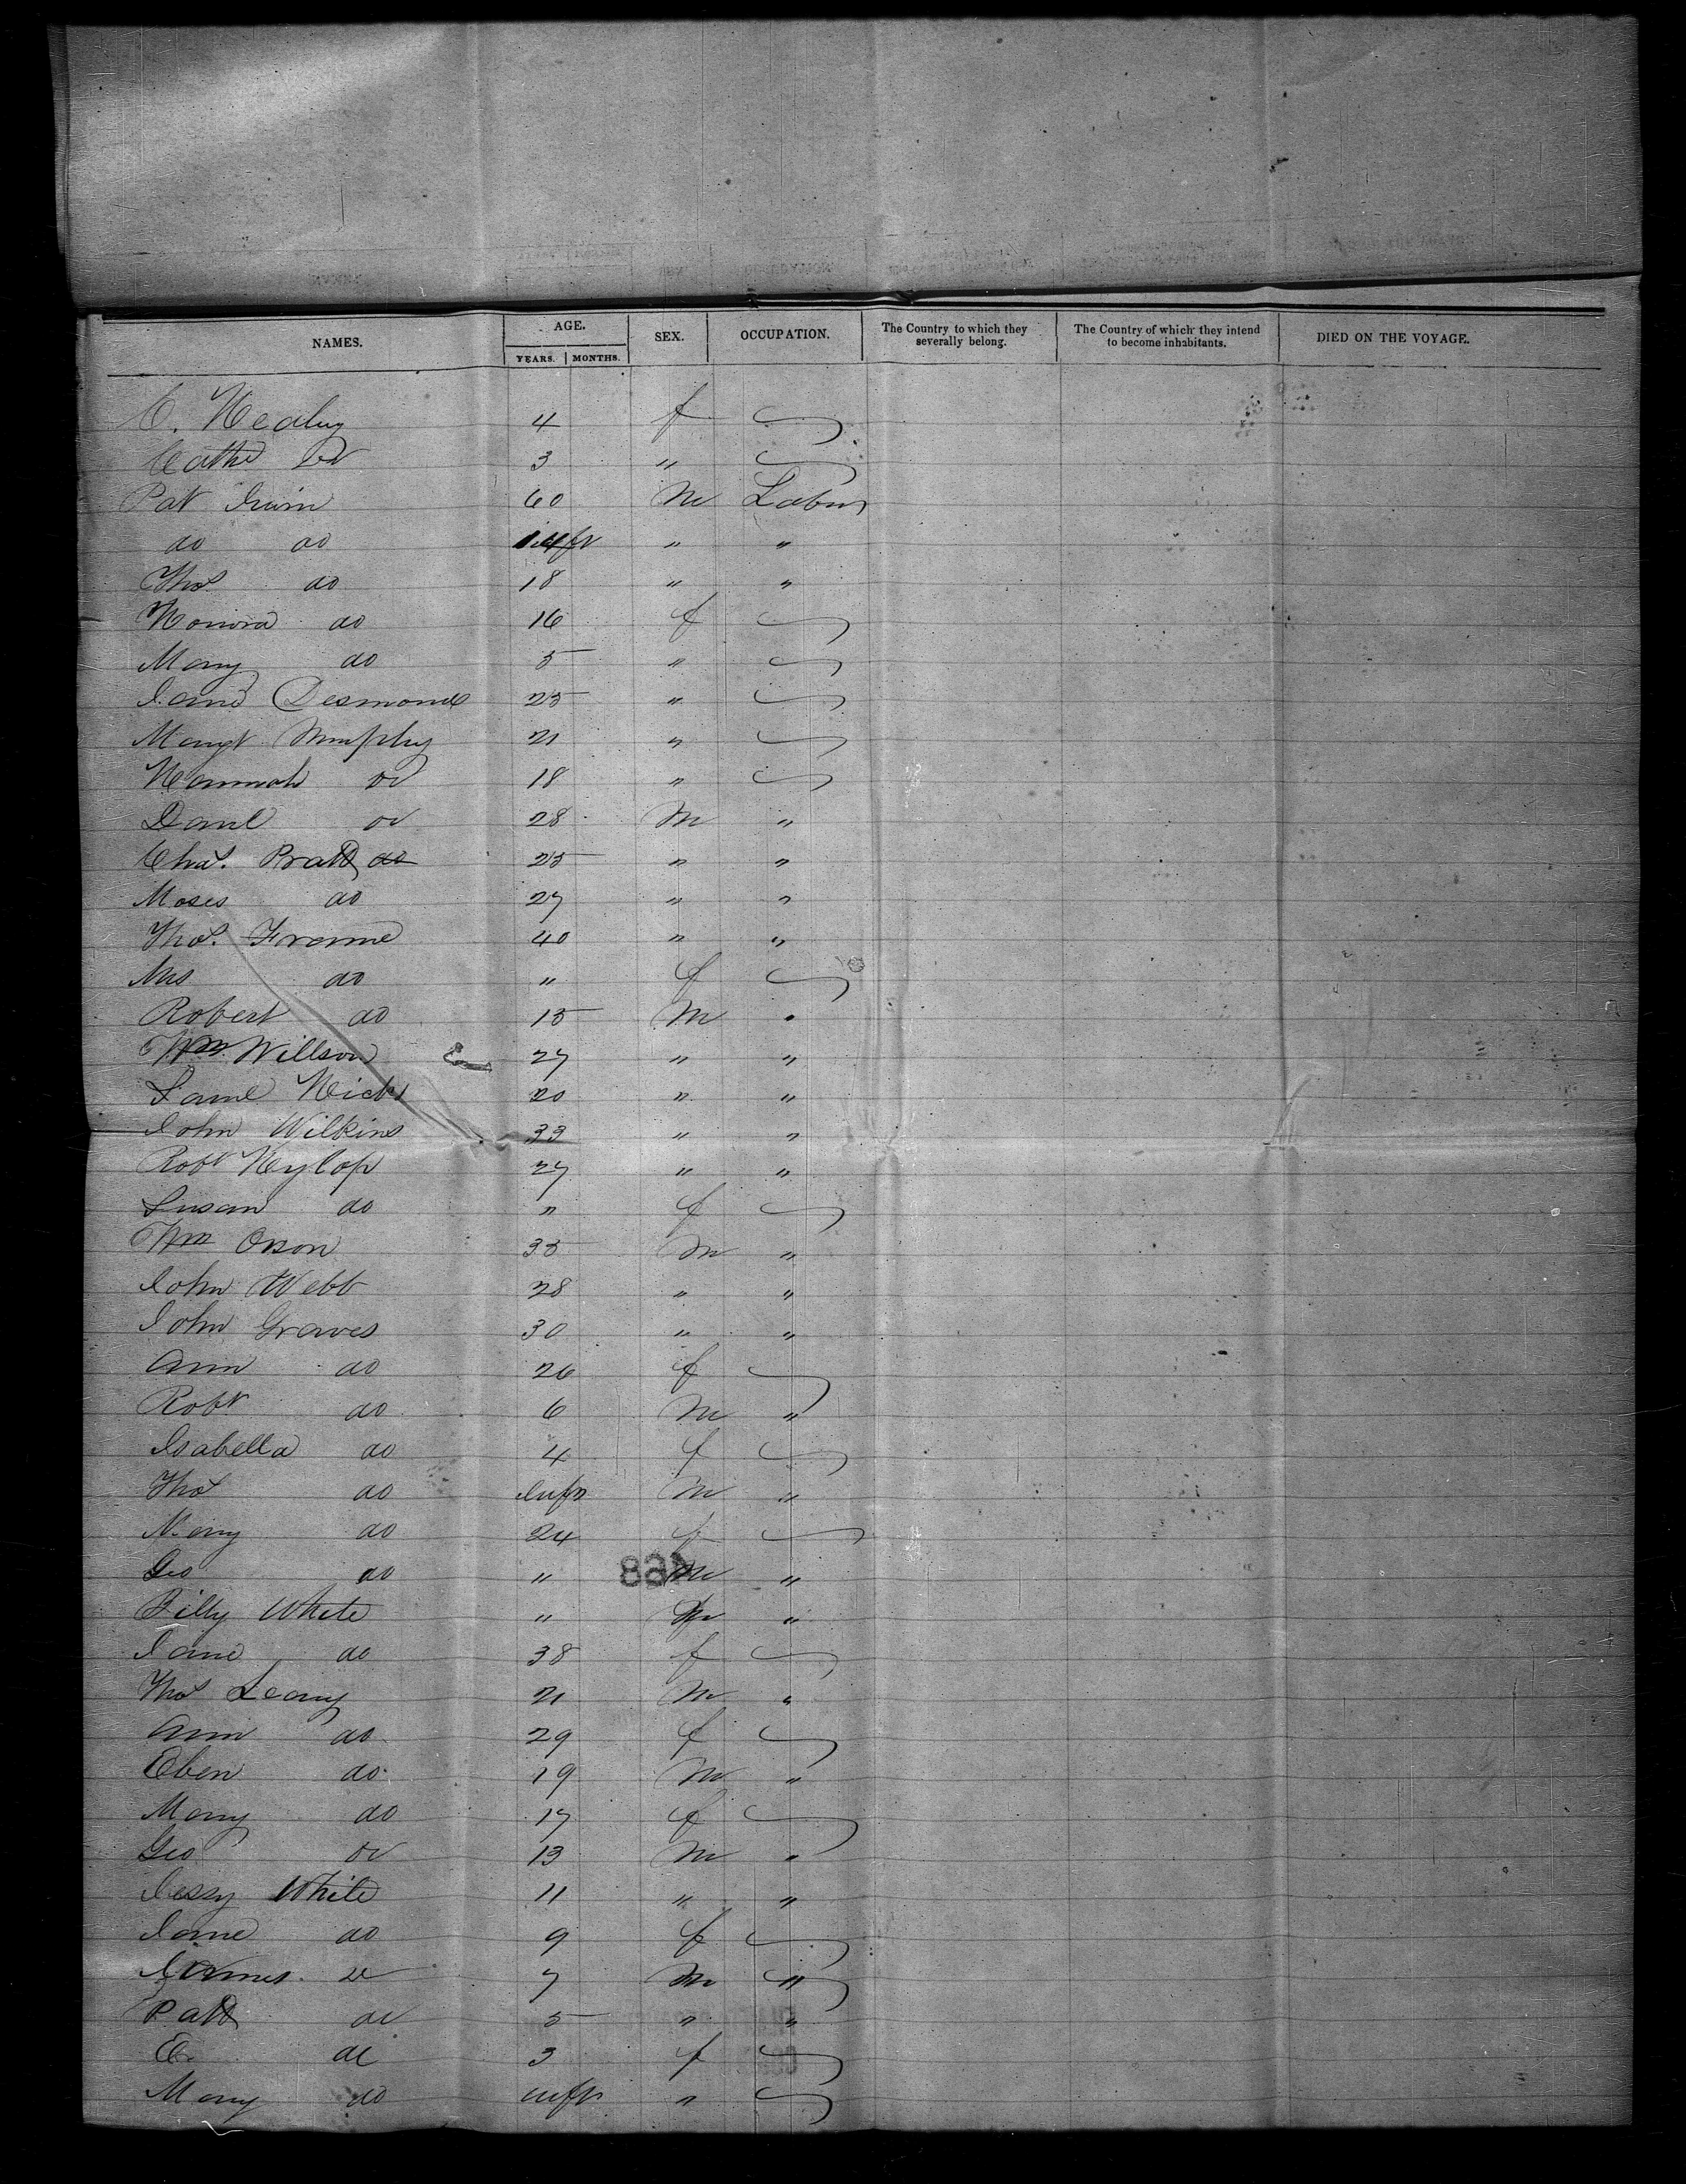 NAMES. AGE. YEARS. MONTHS. SEX. OCCUPATION. The Country to which they severally belong. The Country of which they intend to become inhabitants. DIED ON THE VOYAGE.
C. Healy 4 f
Cathe do 3 "
Pat Irwin 60 M Labor
do do " "
Thos do 18 " "
Honora do 16 f
Mary do 5 "
Jane Desmond 25 "
Margt Murphy 21 "
Hannah do 18 "
Danl do 28 M "
Chas. Pratt do 25 " "
Moses do 27 " "
Thos. Frame 40 " "
Mrs do " f
Robert do 15 M "
Wm Willson 27 " "
Saml Hicks 20 " "
John Wilkins 33 " "
Robt Hyslop 27 " "
Susan do " f
Wm Orson 35 M "
John Webb 28 " "
John Graves 30 " "
Ann do 26 f
Robt do 6 M "
Isabella do 4 f
Thos do Infn M "
Mary do 24 f
Geo do " M "
468
Billy White " M "
Jane do 38 f
Thos Leary 21 M "
Ann do 29 f
Eben do 19 M "
Mary do 17 f
Geo do 13 M "
Jessy White 11 " "
Jane do 9 f
James do 7 M "
Patt do 5 " "
E. do 3 f
Mary do infn "